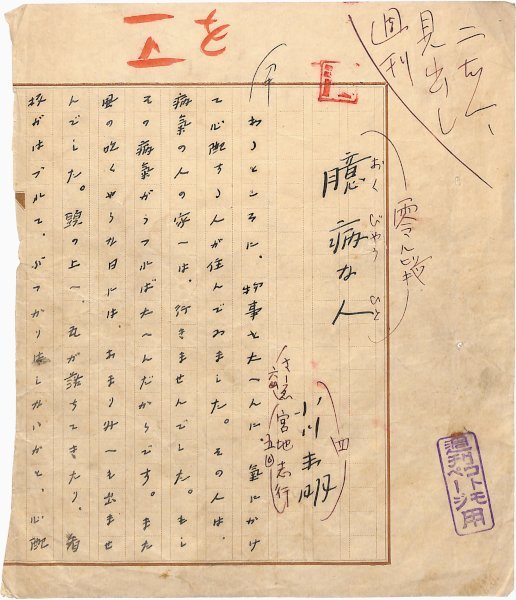 見出し
週刊
臆病な人
おく びやう ひと
小川未明
(四)
さしゑ 宮地志行
あるところに、物事をたいへんに氣にかけ
て心配する人が住んでゐました。その人は、
病氣の人の家へは、行きませんでした。もし
その病氣がうつればたいへんだからです。また
風の吹くやうな日には あまり外へも出ませ
んでした。頭の上へ 瓦が落ちてきたり、看
板がはづれて、ぶつかりはしないかと、心配
コトモ
ページ
用